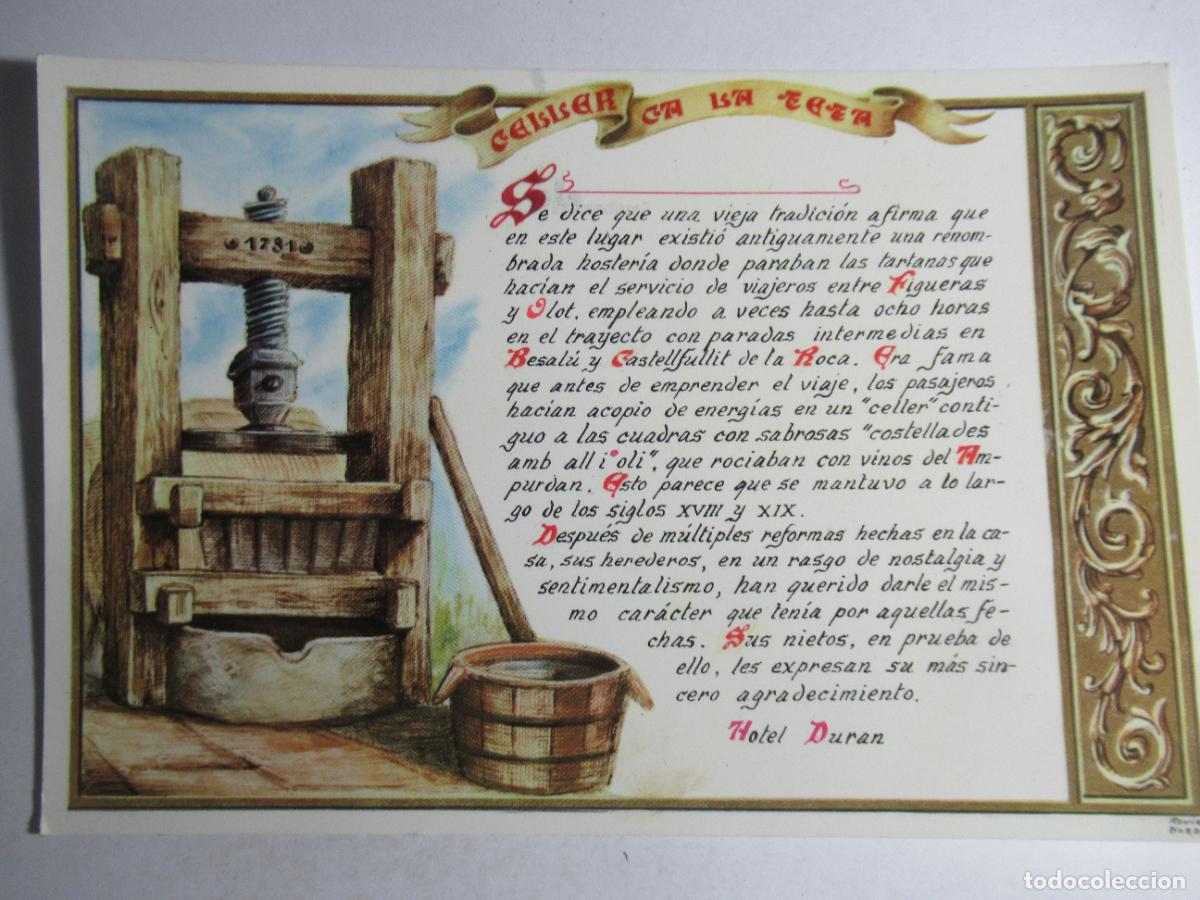 CELLER CA LA TETA
1781
Se dice que una vieja tradición afirma que
en este lugar existió antiguamente una renom-
brada hostería donde paraban las tartanas que
hacían el servicio de viajeros entre Figueras
y Olot, empleando a veces hasta ocho horas
en el trayecto con paradas intermedias en
Besalú y Castellfullit de la Roca. Era fama
que antes de emprender el viaje, los pasajeros
hacían acopio de energías en un "celler" conti-
guo a las cuadras con sabrosas "costellades
amb all i oli", que rociaban con vinos del Am-
purdan. Esto parece que se mantuvo a lo lar-
go de los siglos XVIII y XIX.
Después de múltiples reformas hechas en la ca-
sa, sus herederos, en un rasgo de nostalgia y
sentimentalismo, han querido darle el mis-
mo carácter que tenía por aquellas fe-
chas. Sus nietos, en prueba de
ello, les expresan su más sin-
cero agradecimiento.
Hotel Duran
todocoleccion